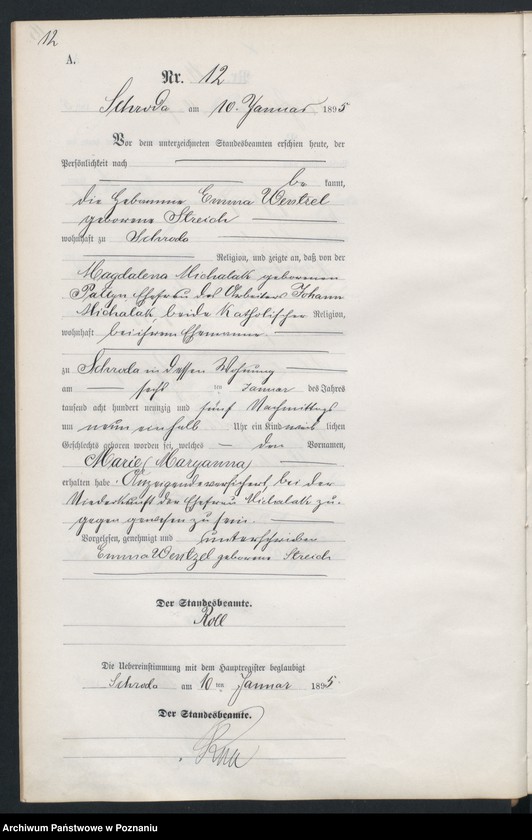 12
A.
Nr. 12
Schroda am 10. Januar 1895
Vor dem unterzeichneten Standesbeamten erschien heute, der
Persönlichkeit nach
be kannt,
die Hebamme Emma Wentzel
geborene Streich
wohnhaft zu Schroda
Religion, und zeigte an, daß von der
Magdalena Michalak geborenen
Ehefrau des Arbeiters Johann
Michalak beide katholischer Religion,
wohnhaft bei ihrem Ehemanne
zu Schroda in dessen Wohnung
am sechs ten Januar des Jahres
tausend acht hundert neunzig und fünf Nachmittags
um neun einhalb Uhr ein Kind weib lichen
Geschlechts geboren worden sei, welches den Vornamen,
Marie (Maryanna)
erhalten habe. Anzeigende versichert, bei der
Niederkunft der Ehefrau Michalak zu-
gegen gewesen zu sein.
Vorgelesen, genehmigt und unterschrieben
Emma Wentzel geborene Streich
Der Standesbeamte.
Roll
Die Uebereinstimmung mit dem Hauptregister beglaubigt
Schroda am 10 ten Januar 1895
Der Standesbeamte.
Roll
Archiwum Państwowe w Poznaniu